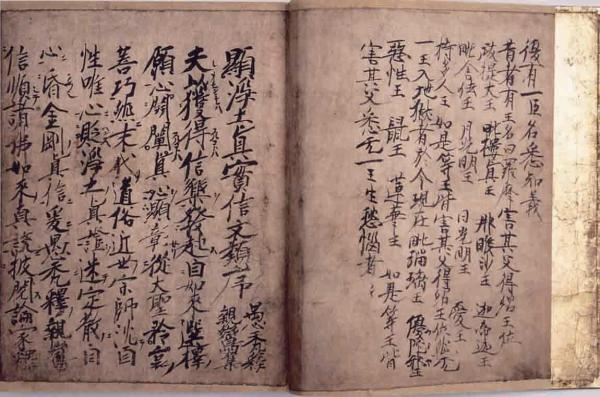 復有一臣名悉知義
昔者有王名曰羅摩害其父得紹王位
跋提大王 毗樓眞王 那睺沙王 迦帝迦王
毗舍佉王 月光明王 日光明王 愛王
持多人王 如是等王皆害其父得紹王位然无
一王入地獄者於今現在毗瑠璃王 優陀邪王
惡性王 鼠王 蓮華王 如是等王皆
害其父悉无一王生愁惱者
顯淨土眞實信文類序
愚禿釋
親鸞集
夫以獲得信樂發起自如來選擇
願心開闡眞心顯彰從大聖矜哀
善巧然末代道俗近世宗師沈自
性唯心貶淨土眞證迷定散自
心昏金剛眞信爰愚禿釋親鸞
信順諸佛如來眞説披閲論家釋